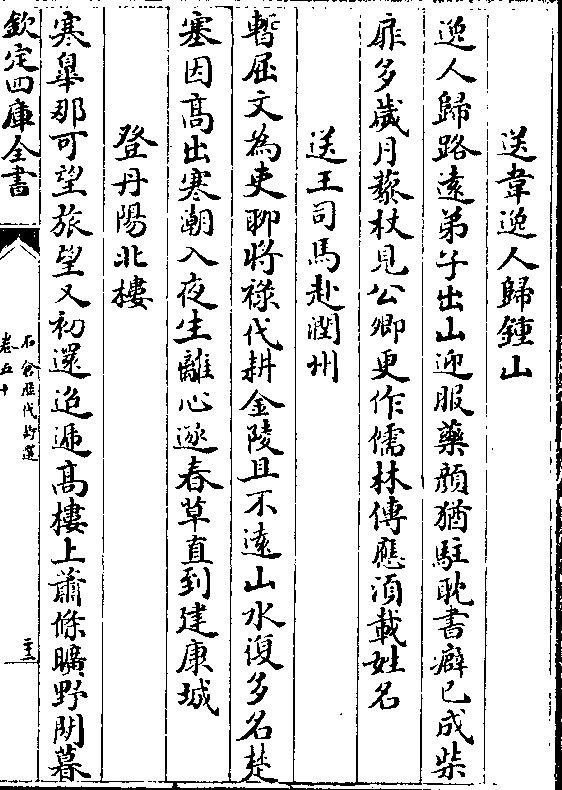 送韋逸人歸鍾山
逸人歸路遠弟子出山迎服藥顔猶駐耽書癖已成柴
扉多歲月藜杖見公卿更作儒林傳應湏載姓名
送王司馬赴潤州
暫屈文為吏聊將禄代耕金陵且不遠山水復多名楚
塞因高出寒潮入夜生離心逐春草直到建康城
登丹陽北樓
寒皐那可望旅望又初還迢遞高樓上蕭條曠野閒暮
欽定四庫全書
石倉歴代詩選
卷五十